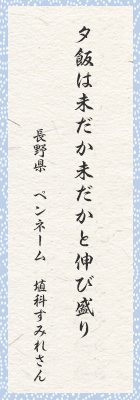 夕飯は未だか未だかと伸び盛り
長野県 ペンネーム 埴科すみれさん